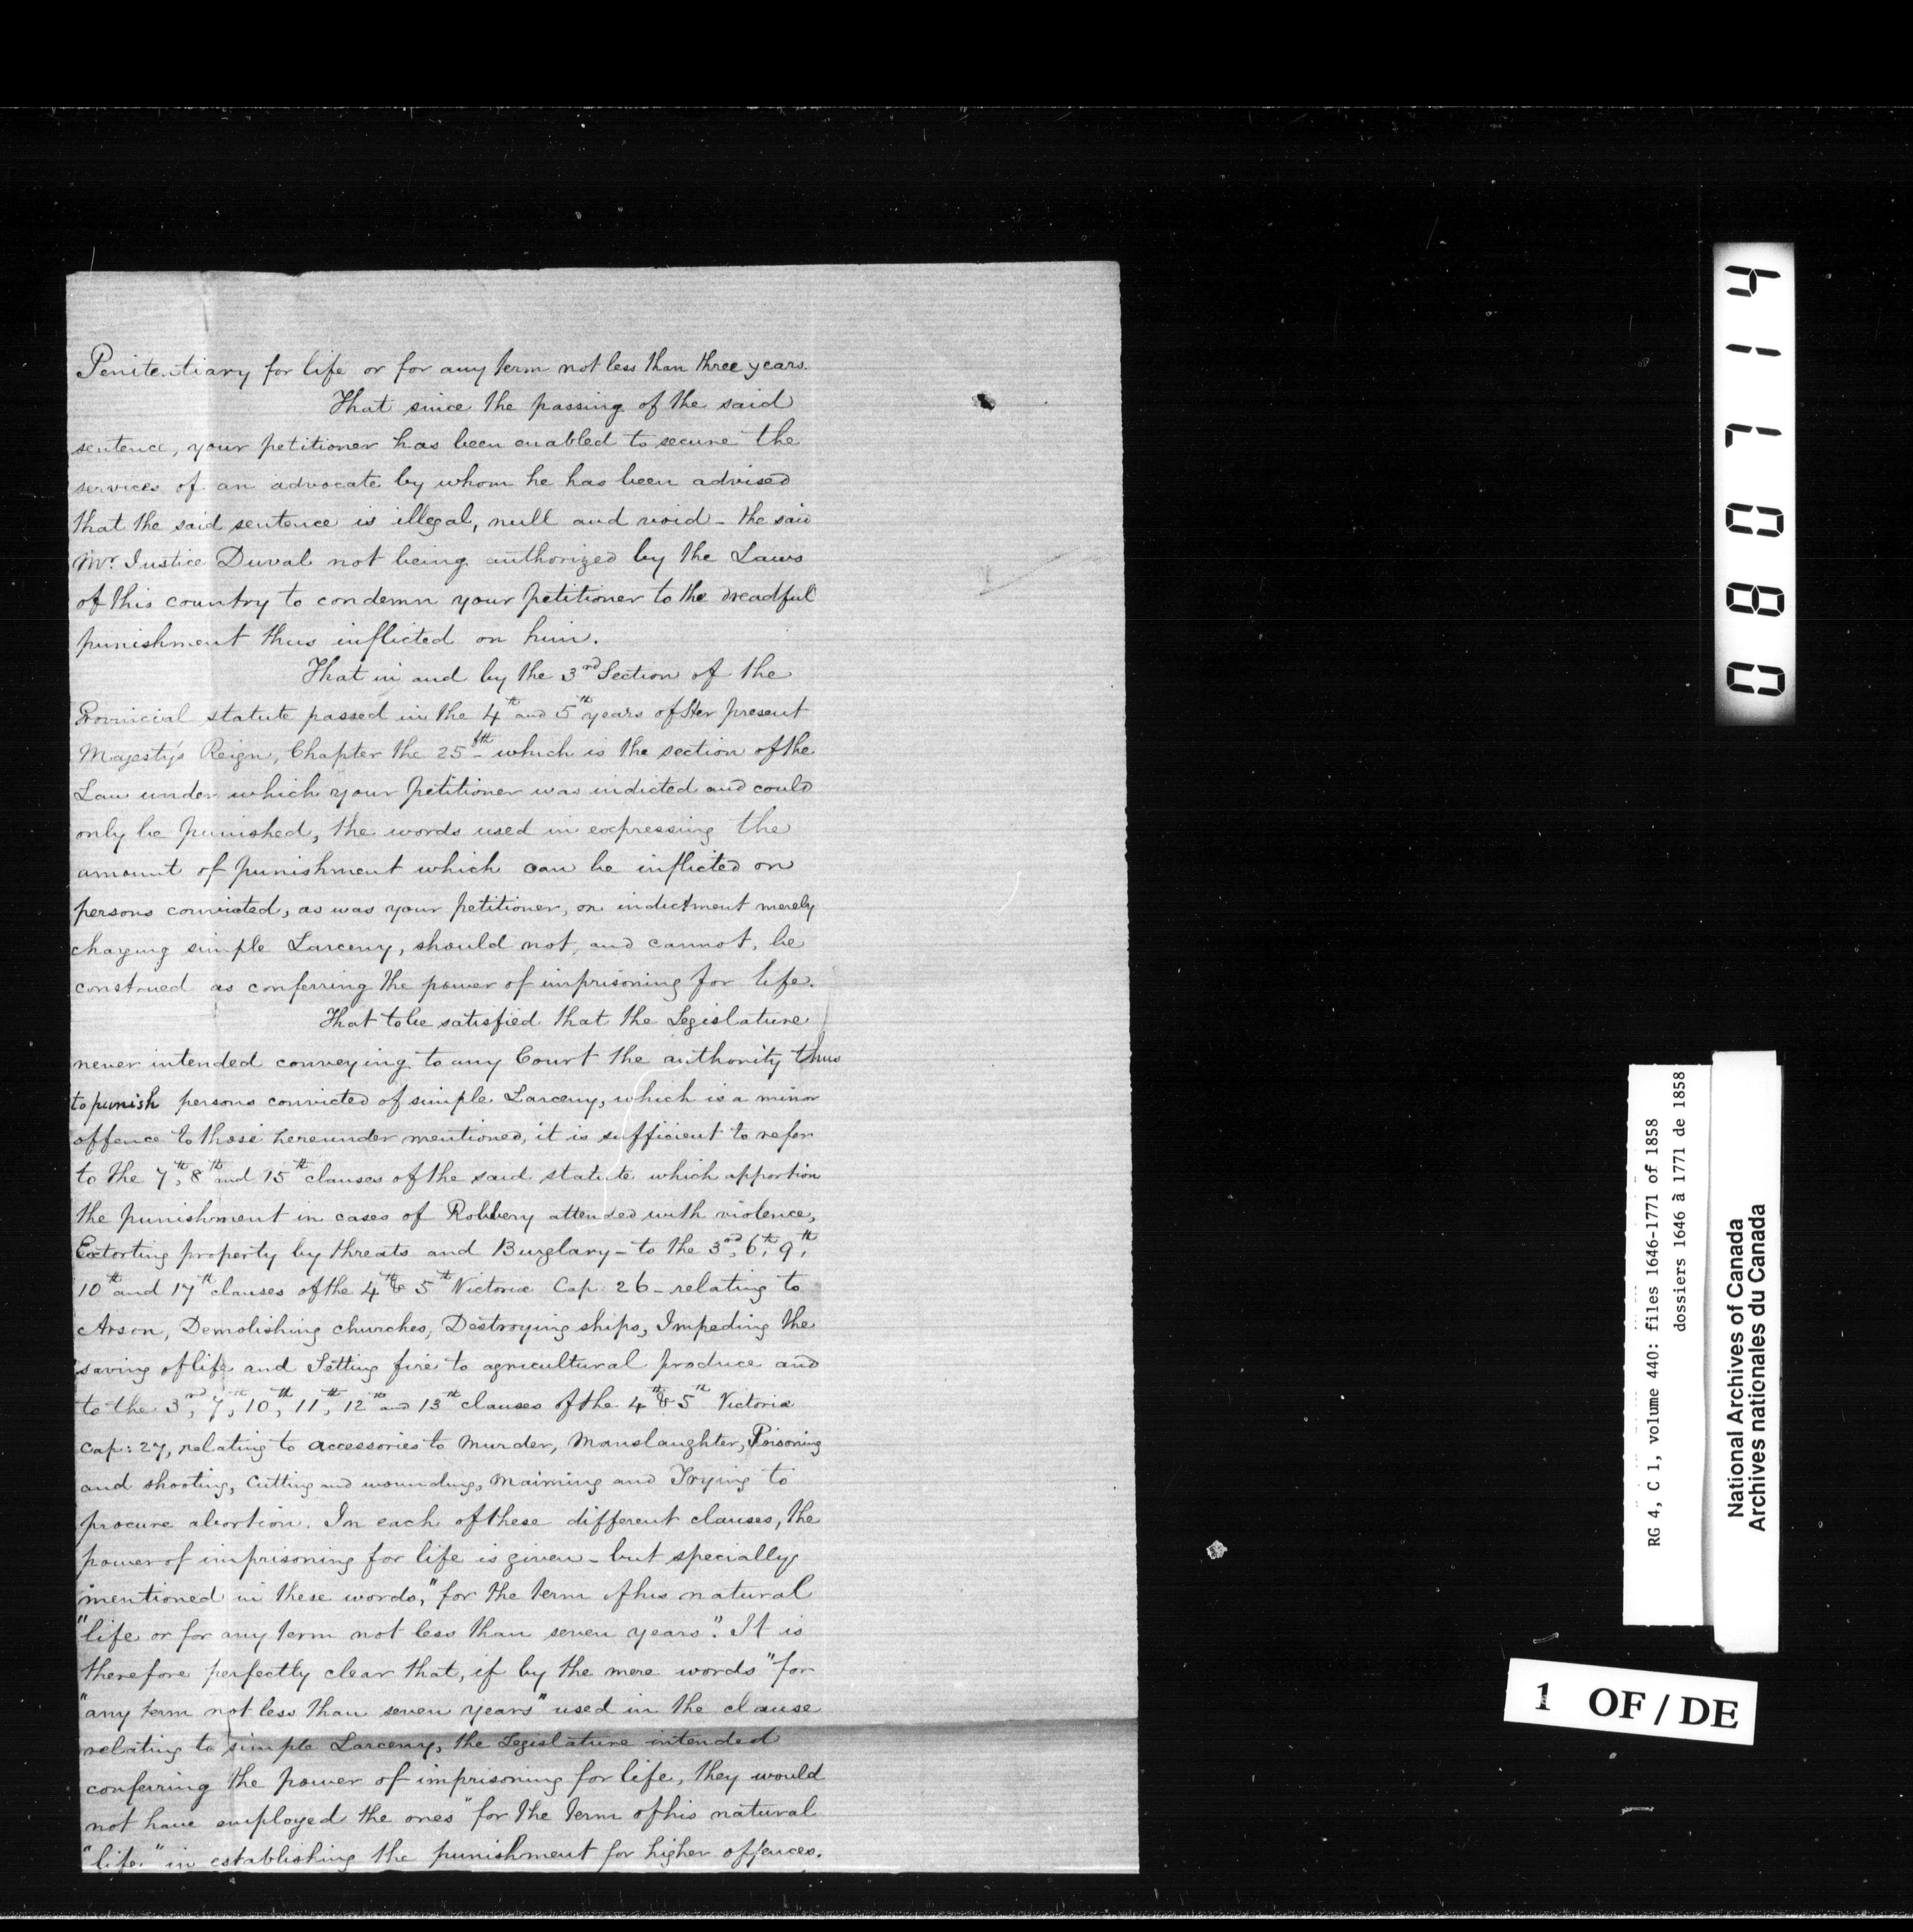 Penitentiary for life or for any term not less than three years.
That since the passing of the said
sentence, your petitioner has been enabled to secure the
services of an advocate by whom he has been advised
that the said sentence is illegal, null and void - the said
Mr. Justice Duval not being authorized by the Laws
of this country to condemn your petitioner to the dreadful
punishment thus inflicted on him.
That in and by the 3rd Section of the
Provincial statute passed in the 4th and 5th years of Her present
Majesty's Reign, Chapter the 25fth - which is the section of the
Law under which your petitioner was indicted and could
only be punished, the words used in expressing the
amount of punishment which can be inflicted on
persons convicted, as was your petitioner, on indictment merely
charging simple Larceny, should not, and cannot, be
construed as conferring the power of imprisoning for life.
That to be satisfied that the Legislature
never intended conveying to any Court the authority thus
to punish persons convicted of simple Larceny, which is a minor
offence to those hereunder mentioned, it is sufficient to refer
to the 7th, 8th and 15th clauses of the said statute which apportion
the punishment in cases of Robbery attended with violence,
Extorting property by threats and Burglary - to the 3rd, 6th, 9th,
10th and 17th clauses of the 4th & 5th Victoria Cap: 26 - relating to
Arson, Demolishing churches, Destroying ships, Impeding the
saving of life and Setting fire to agricultural produce and
to the 3rd, 7th, 10th, 11th, 12th and 13th clauses of the 4th & 5th Victoria
Cap: 27, relating to accessories to Murder, Manslaughter, Poisoning
and shooting, Cutting and wounding, Maiming and Trying to
procure abortion. In each of these different clauses, the
power of imprisoning for life is given - but specially
mentioned in these words, "for the term of his natural
"life or for any term not less than seven years". It is
therefore perfectly clear that, if by the mere words "for
"any term not less than seven years" used in the clause
relating to simple Larceny, the Legislature intended
conferring the power of imprisoning for life, they would
not have employed the ones "for the term of his natural
"life" in establishing the punishment for higher offences.
087014
RG 4, C 1, volume 440: files 1646-1771 of 1858
dossiers 1646 à 1771 de 1858
National Archives of Canada
Archives nationales du Canada
1 OF / DE